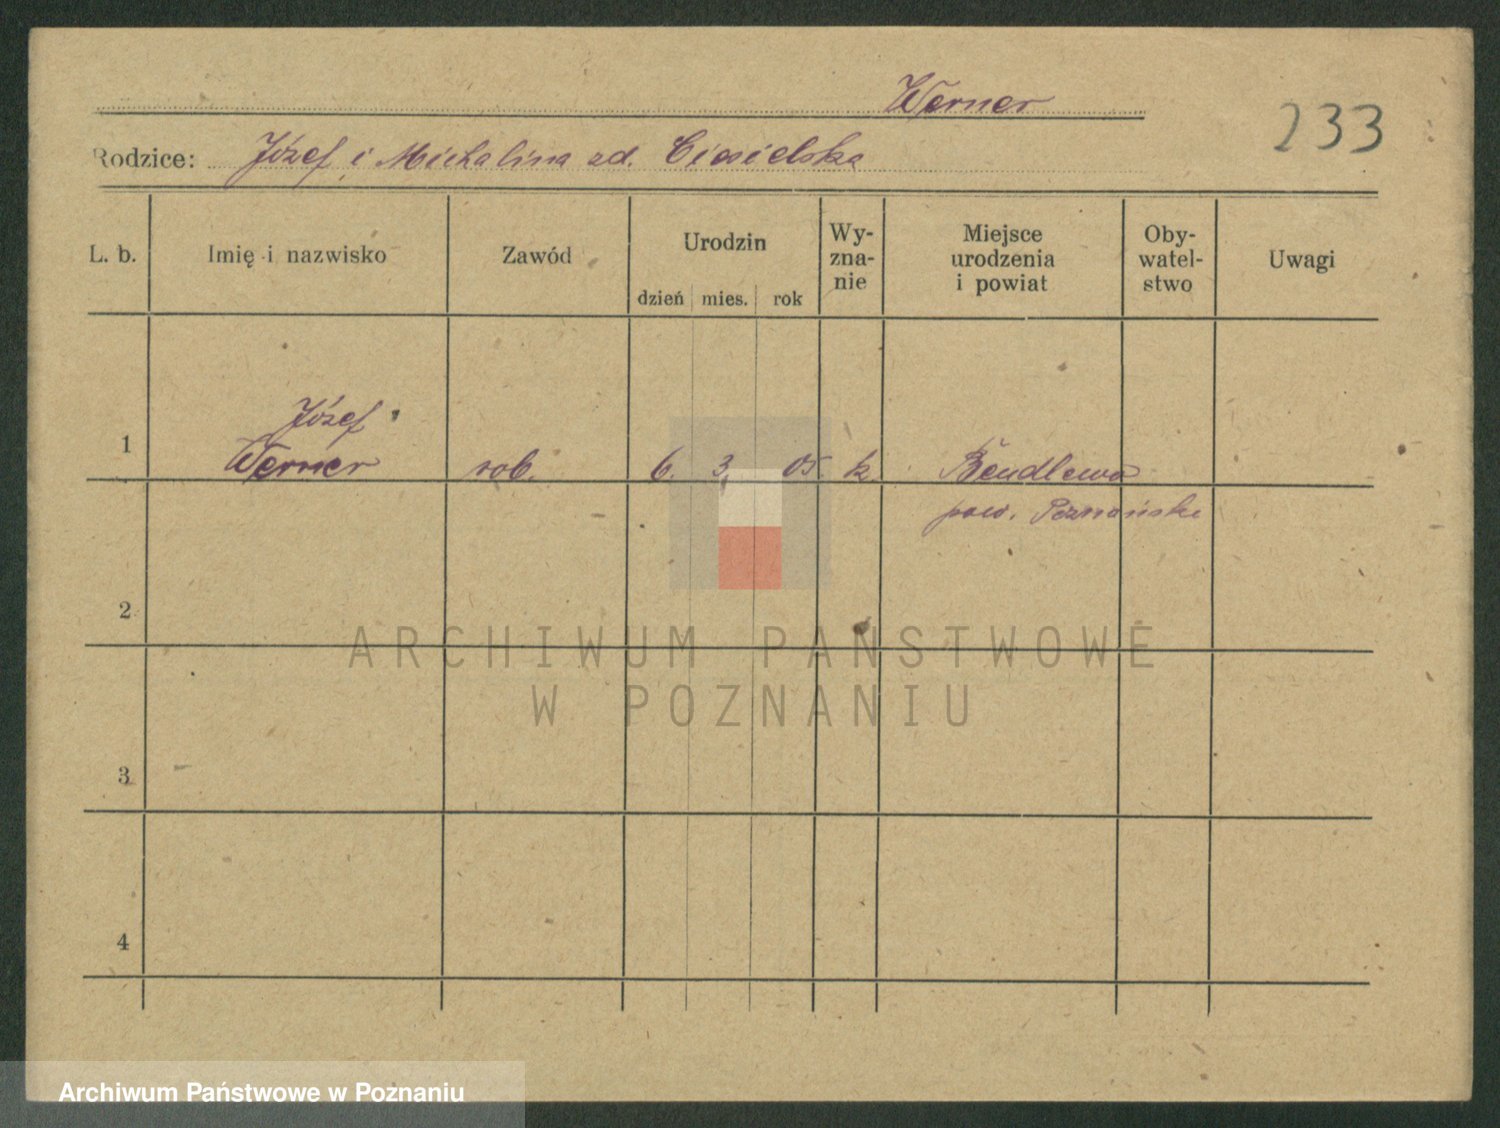 Werner
233
Rodzice: Józef i Michalina zd. Ciesielska
L. b. Imię i nazwisko Zawód Urodzin Wy-zna-nie Miejsce urodzenia i powiat Oby-watel-stwo Uwagi
dzień mies. rok
Józef
1 Werner rob. 6. 3. 05. k. Bendlewo
pow. Poznański
2
ARCHIWUM PAŃSTWOWE
W POZNANIU
3
4
Archiwum Państwowe w Poznaniu